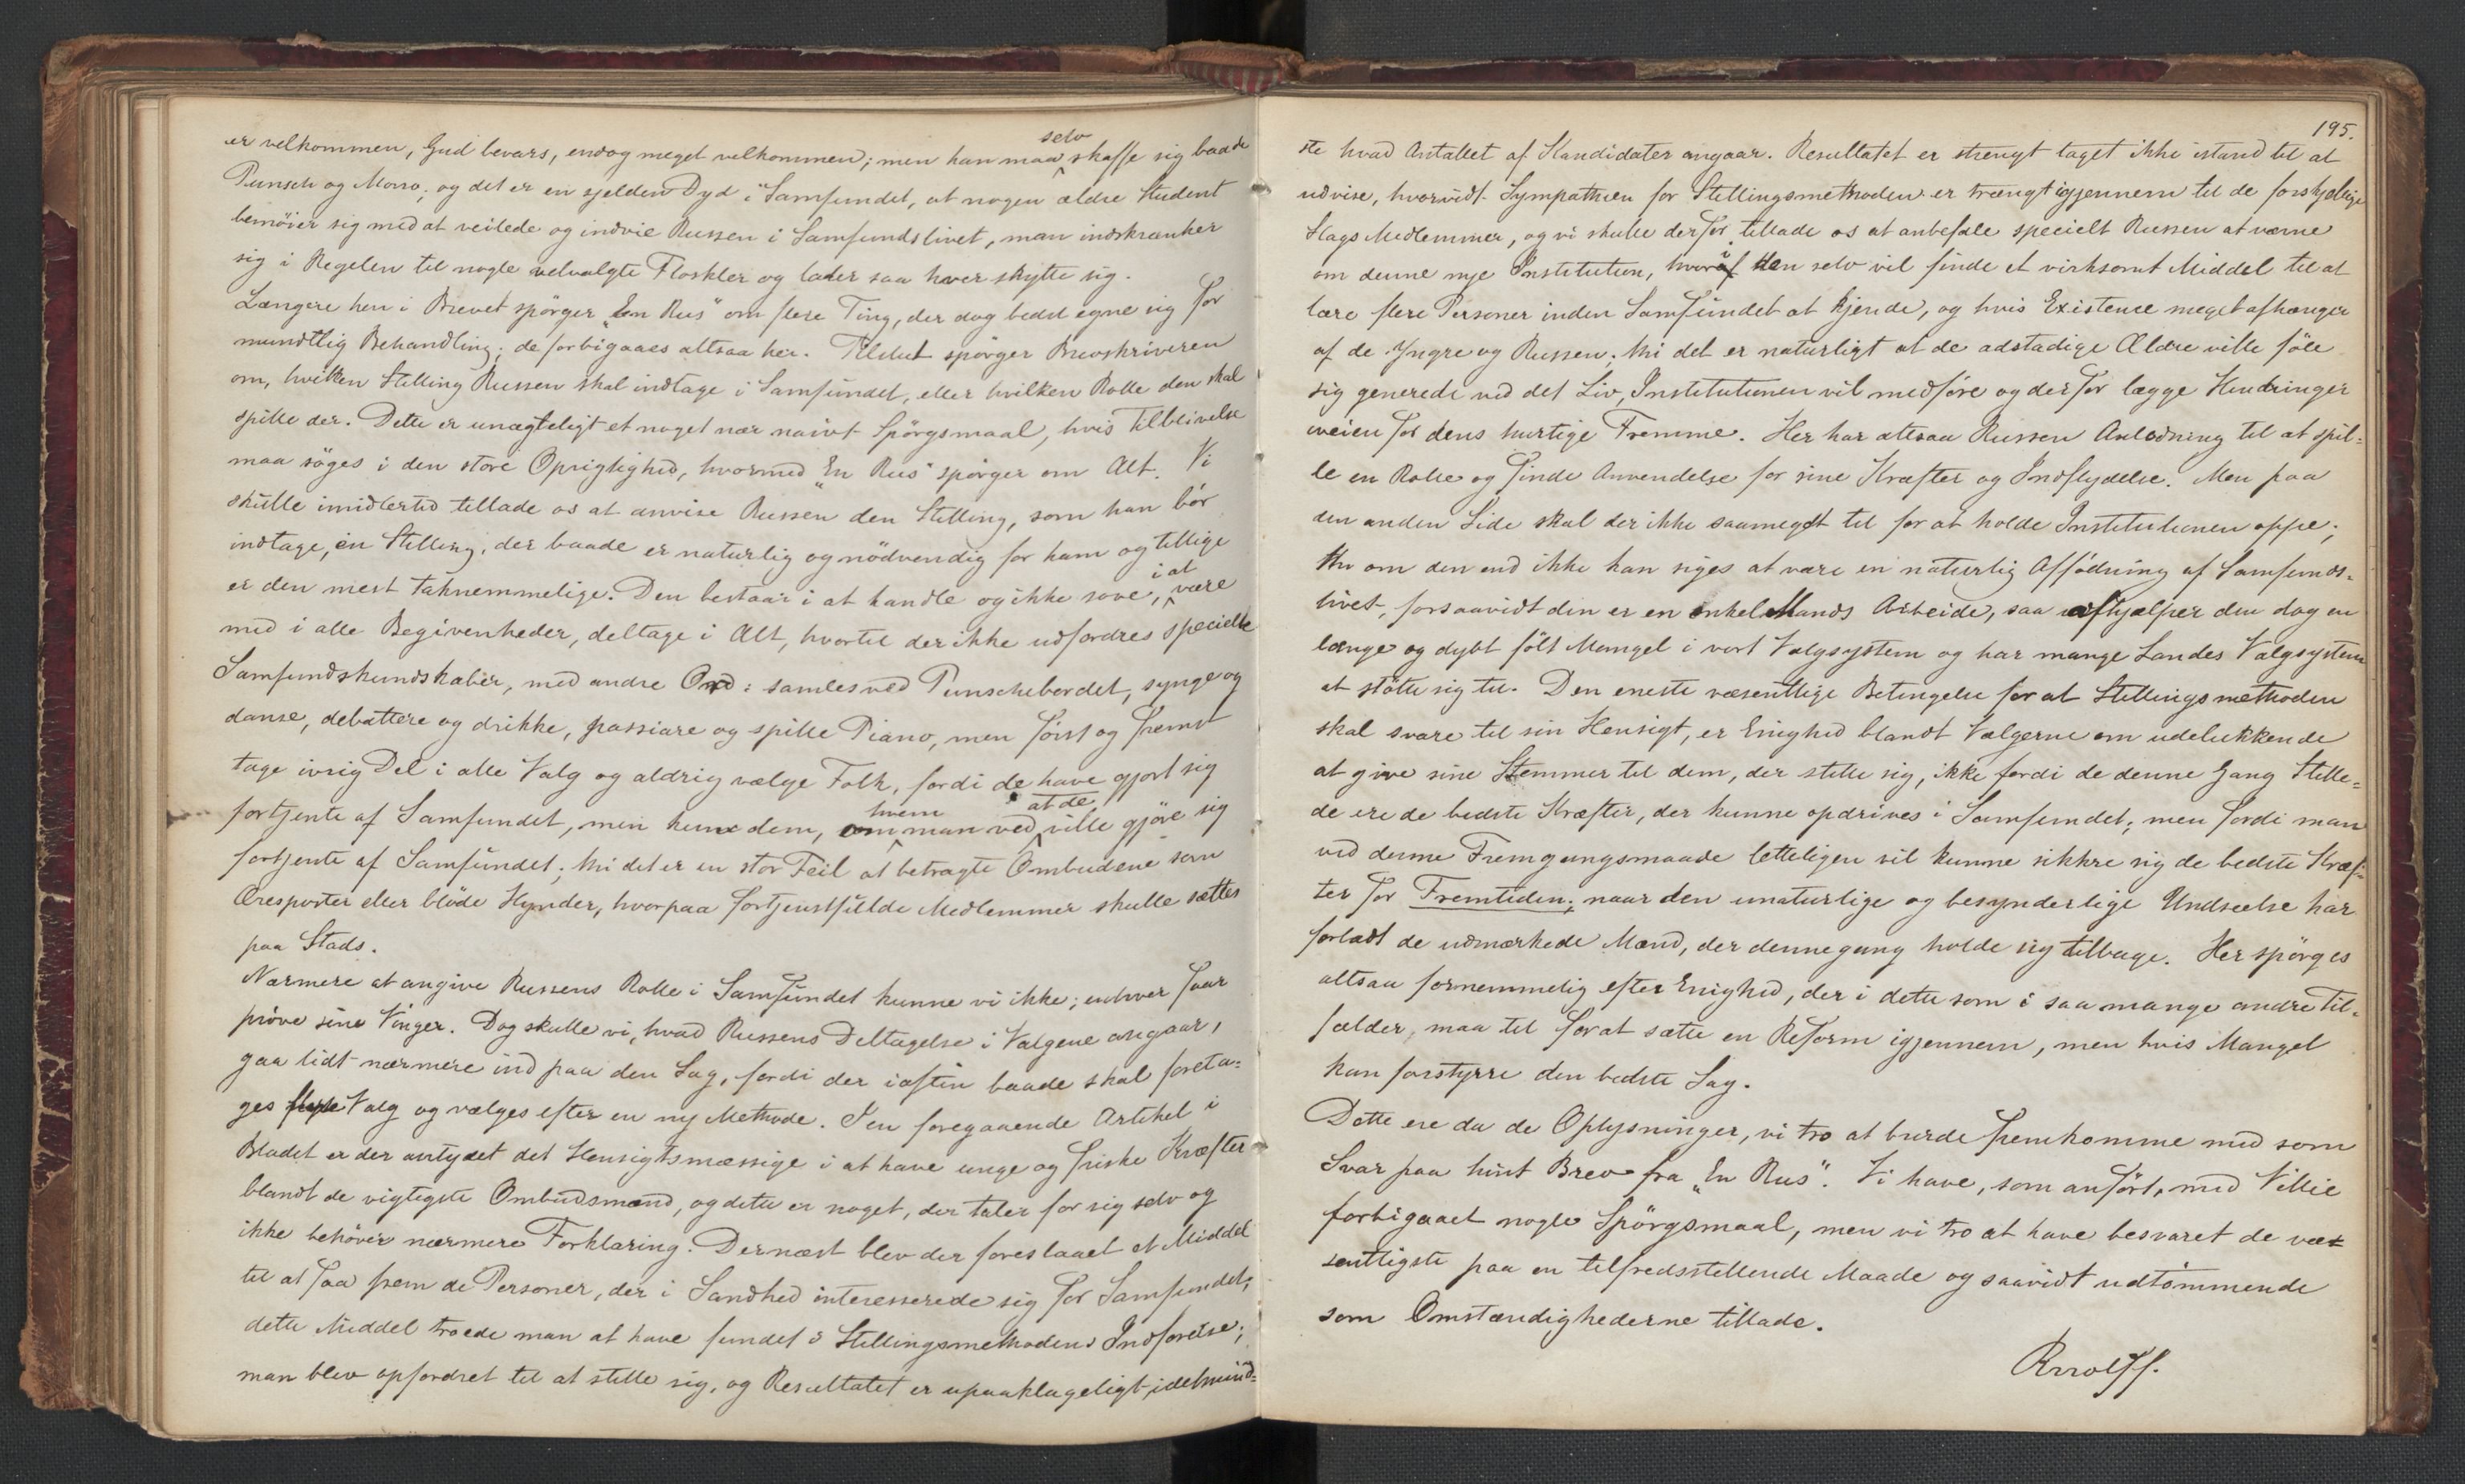 er velkommen, Gud bevars, endog meget velkommen; men han maa selv skaffe sig baade
Punsch og Moro; og det er en sjelden Dyd i Samfundet, at nogen ældre Student
bemöier sig med at veilede og indvie Russen i Samfundslivet, man indskrænker
sig i Regelen til nogle velvalgte Floskler og lader saa hver skytte sig.
Længere hen i Brevet spörger „En Rus" om flere Ting, der dog bedst egne sig for
mundtlig Behandling; de forbigaaes altsaa her. Tilslut spörger Brevskriveren
om, hvilken Stilling Russen skal indtage i Samfundet, eller hvilken Rolle den skal
spille der. Dette er unægteligt et noget nær naivt Spörgsmaal, hvis Tilblivelse
maa söges i den store Oprigtighed, hvormed „En Rus" spörger om Alt. Vi
skulle imidlertid tillade os at anvise Russen den Stilling, som han bör
indtage, en Stilling, der baade er naturlig og nödvendig for ham og tillige
er den mest taknemmelige. Den bestaar i at handle og ikke sove, i at være
med i alle Begivenheder, deltage i Alt, hvortil der ikke udfordres specielle
Samfundskundskaber, med andre Ord: samles ved Punschebordet, synge og
danse, debattere og drikke, passiare og spille Piano, men först og fremst
tage ivrig Del i alle Valg og aldrig vælge Folk, fordi de have gjort sig
fortjente af Samfundet, men kun dem, om hvem man ved at de ville gjöre sig
fortjente af Samfundet; thi det er en stor Feil at betragte Ombudene som
Æresposter eller blöde Hynder, hvorpaa fortjenstfulde Medlemmer skulle sættes
paa Stads.
Nærmere at angive Russens Rolle i Samfundet kunne vi ikke; enhver faar
pröve sine Vinger. Dog skulle vi, hvad Russens Deltagelse i Valgene angaar,
gaa lidt nærmere ind paa den Sag, fordi der iaften baade skal foreta-
ges flere Valg og vælges efter en ny Methode. I en foregaaende Artikel i
Bladet er der antydet det Hensigtsmæssige i at have unge og friske Kræfter
blandt de vigtigste Ombudsmænd, og dette er noget, der taler for sig selv og
ikke behöver nærmere Forklaring. Dernæst blev der foreslaaet et Middel
til at faa frem de Personer, der i Sandhed interesserede sig for Samfundet;
dette Middel troede man at have fundet i Stillingsmethodens Indförelse;
man blev opfordret til at stille sig, og Resultatet er upaaklageligt, idetmind-
195.
ste hvad Antallet af Kandidater angaar. Resultatet er strengt taget ikke istand til at
udvise, hvorvidt Sympathien for Stillingsmethoden er trængt igjennem til de forskjellige
Slags Medlemmer, og vi skulle derfor tillade os at anbefale specielt Russen at værne
om denne nye Institution, hvori den selv vil finde et virksomt Middel til at
lære flere Personer inden Samfundet at kjende, og hvis Existence meget afhænger
af de Yngre og Russen; thi det er naturligt at de adstadige Ældre ville föle
sig generede ved det Liv, Institutionen vil medföre og derfor lægge Hindringer
iveien for dens hurtige Fremme. Her har altsaa Russen Anledning til at spil-
le en Rolle og finde Anvendelse for sine Kræfter og Indflydelse. Men paa
den anden Side skal der ikke saameget til for at holde Institutionen oppe;
thi om den end ikke kan siges at være en naturlig Affödning af Samfunds-
livet, forsaavidt den er en enkelt Mands Arbeide, saa afhjælper den dog en
længe og dybt fölt Mangel i vort Valgsystem og har mange Landes Valgsystem
at stötte sig til. Den eneste væsentlige Betingelse for at Stillingsmethoden
skal svare til sin Hensigt, er Enighed blandt Vælgerne om udelukkende
at give sine Stemmer til dem, der stille sig, ikke fordi de denne Gang Stille-
de ere de bedste Kræfter, der kunne opdrives i Samfundet; men fordi man
ved denne Fremgangsmaade letteligen vil kunne sikkre sig de bedste Kræf-
ter for Fremtiden; naar den unaturlige og besynderlige Undseelse har
forladt de udmærkede Mænd, der dennegang holde sig tilbage. Her spörges
altsaa fornemmelig efter Enighed, der i dette som i saa mange andre Til-
fælder, maa til for at sætte en Reform igjennem, men hvis Mangel
kan forstyrre den bedste Sag.
Dette ere da de Oplysninger, vi tro at burde fremkomme med som
Svar paa hint Brev fra „En Rus". Vi have, som anfört, med Villie
forbigaaet nogle Spörgsmaal, men vi tro at have besvaret de væ-
sentligste paa en tilfredsstillende Maade og saavidt udtömmende
som Omstændighederne tillade.